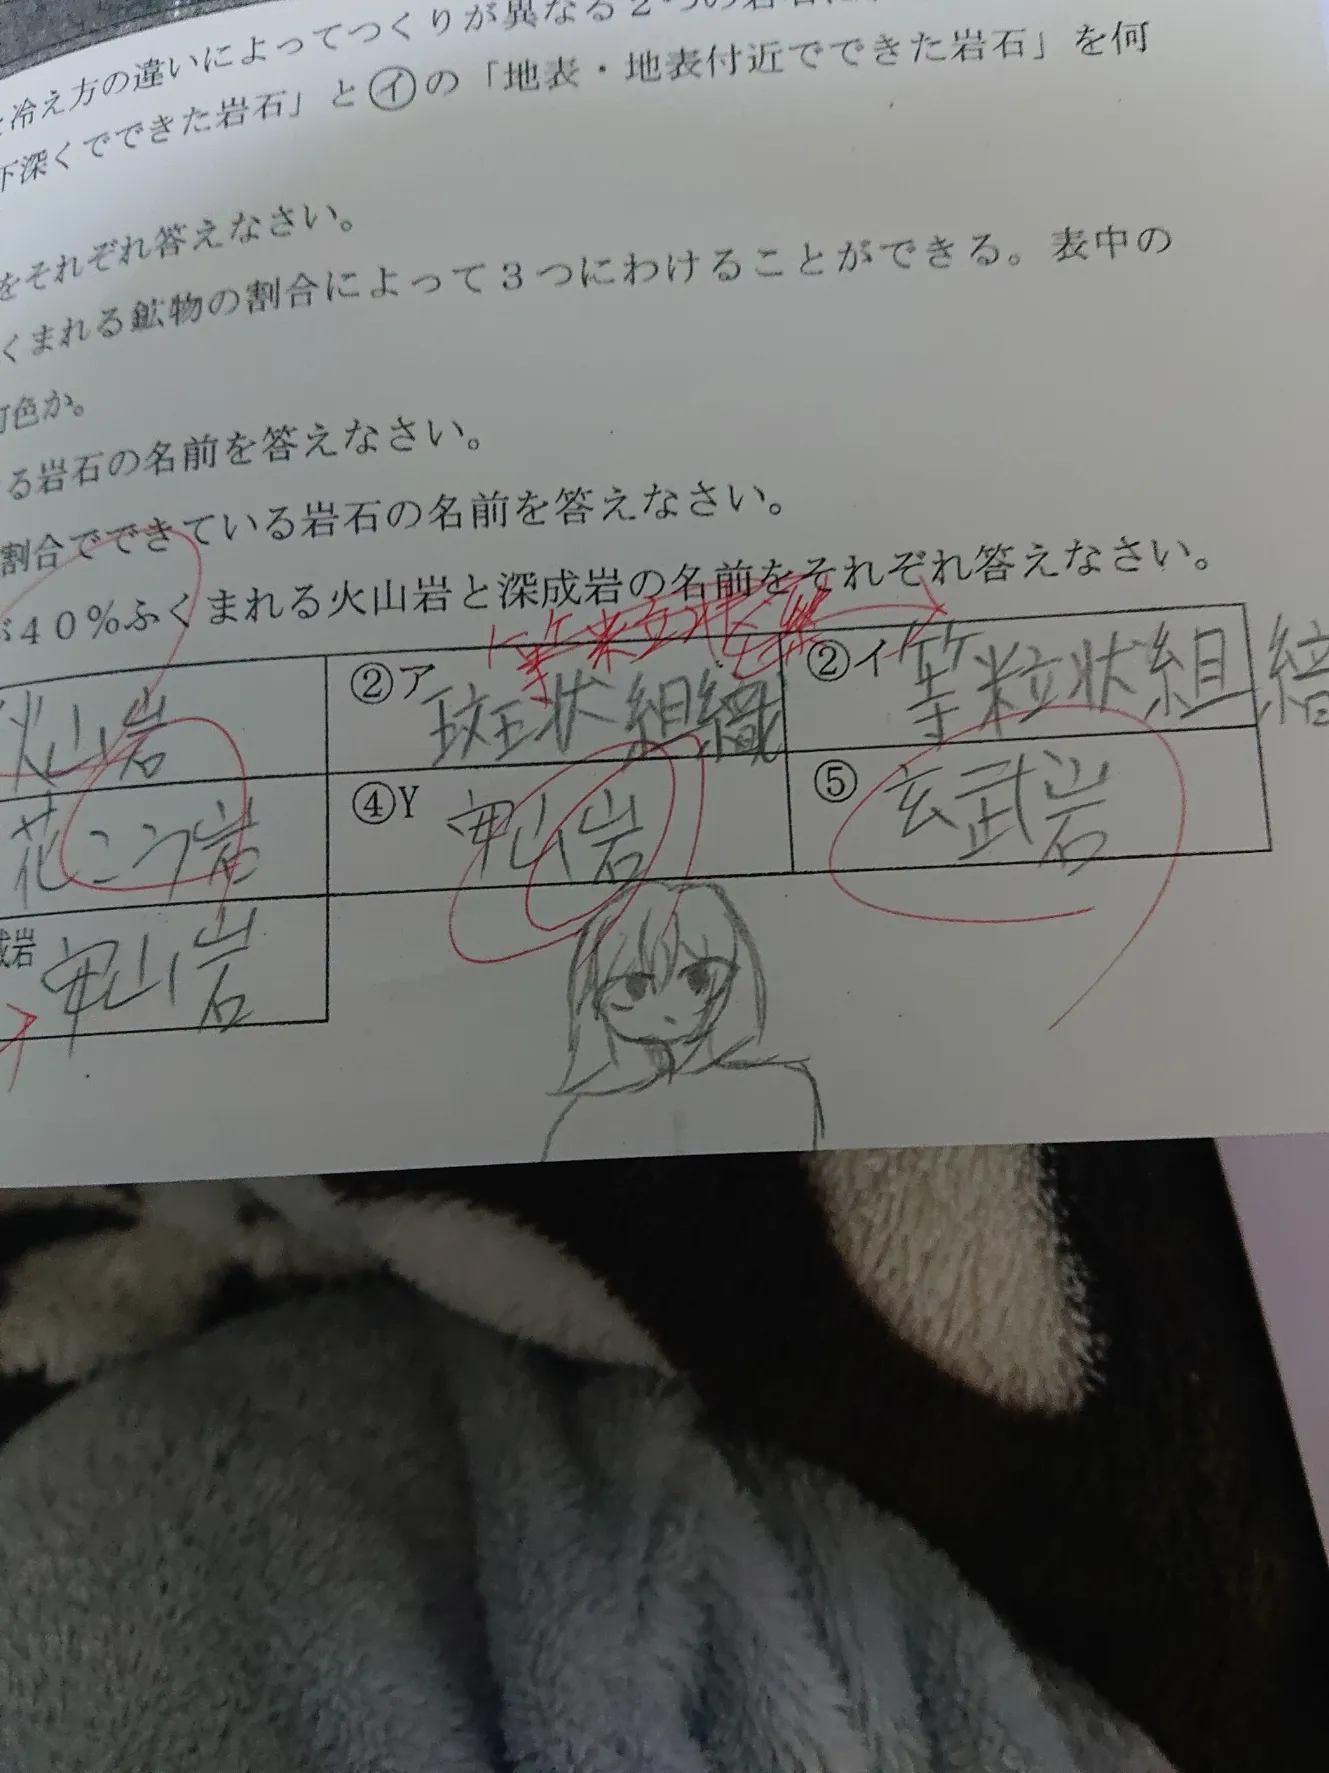 冷え方の違いによってつくりが異なる2つの岩石
下深くでできた岩石」と㋑の「地表・地表付近でできた岩石」を何
をそれぞれ答えなさい。
くまれる鉱物の割合によって3つにわけることができる。表中の
何色か。
る岩石の名前を答えなさい。
割合でできている岩石の名前を答えなさい。
40%ふくまれる火山岩と深成岩の名前をそれぞれ答えなさい。
等粒状組織
火山岩 ②ア 斑状組織 ②イ 等粒状組織
花こう岩 ④Y 安山岩 ⑤ 玄武岩
成岩 安山岩